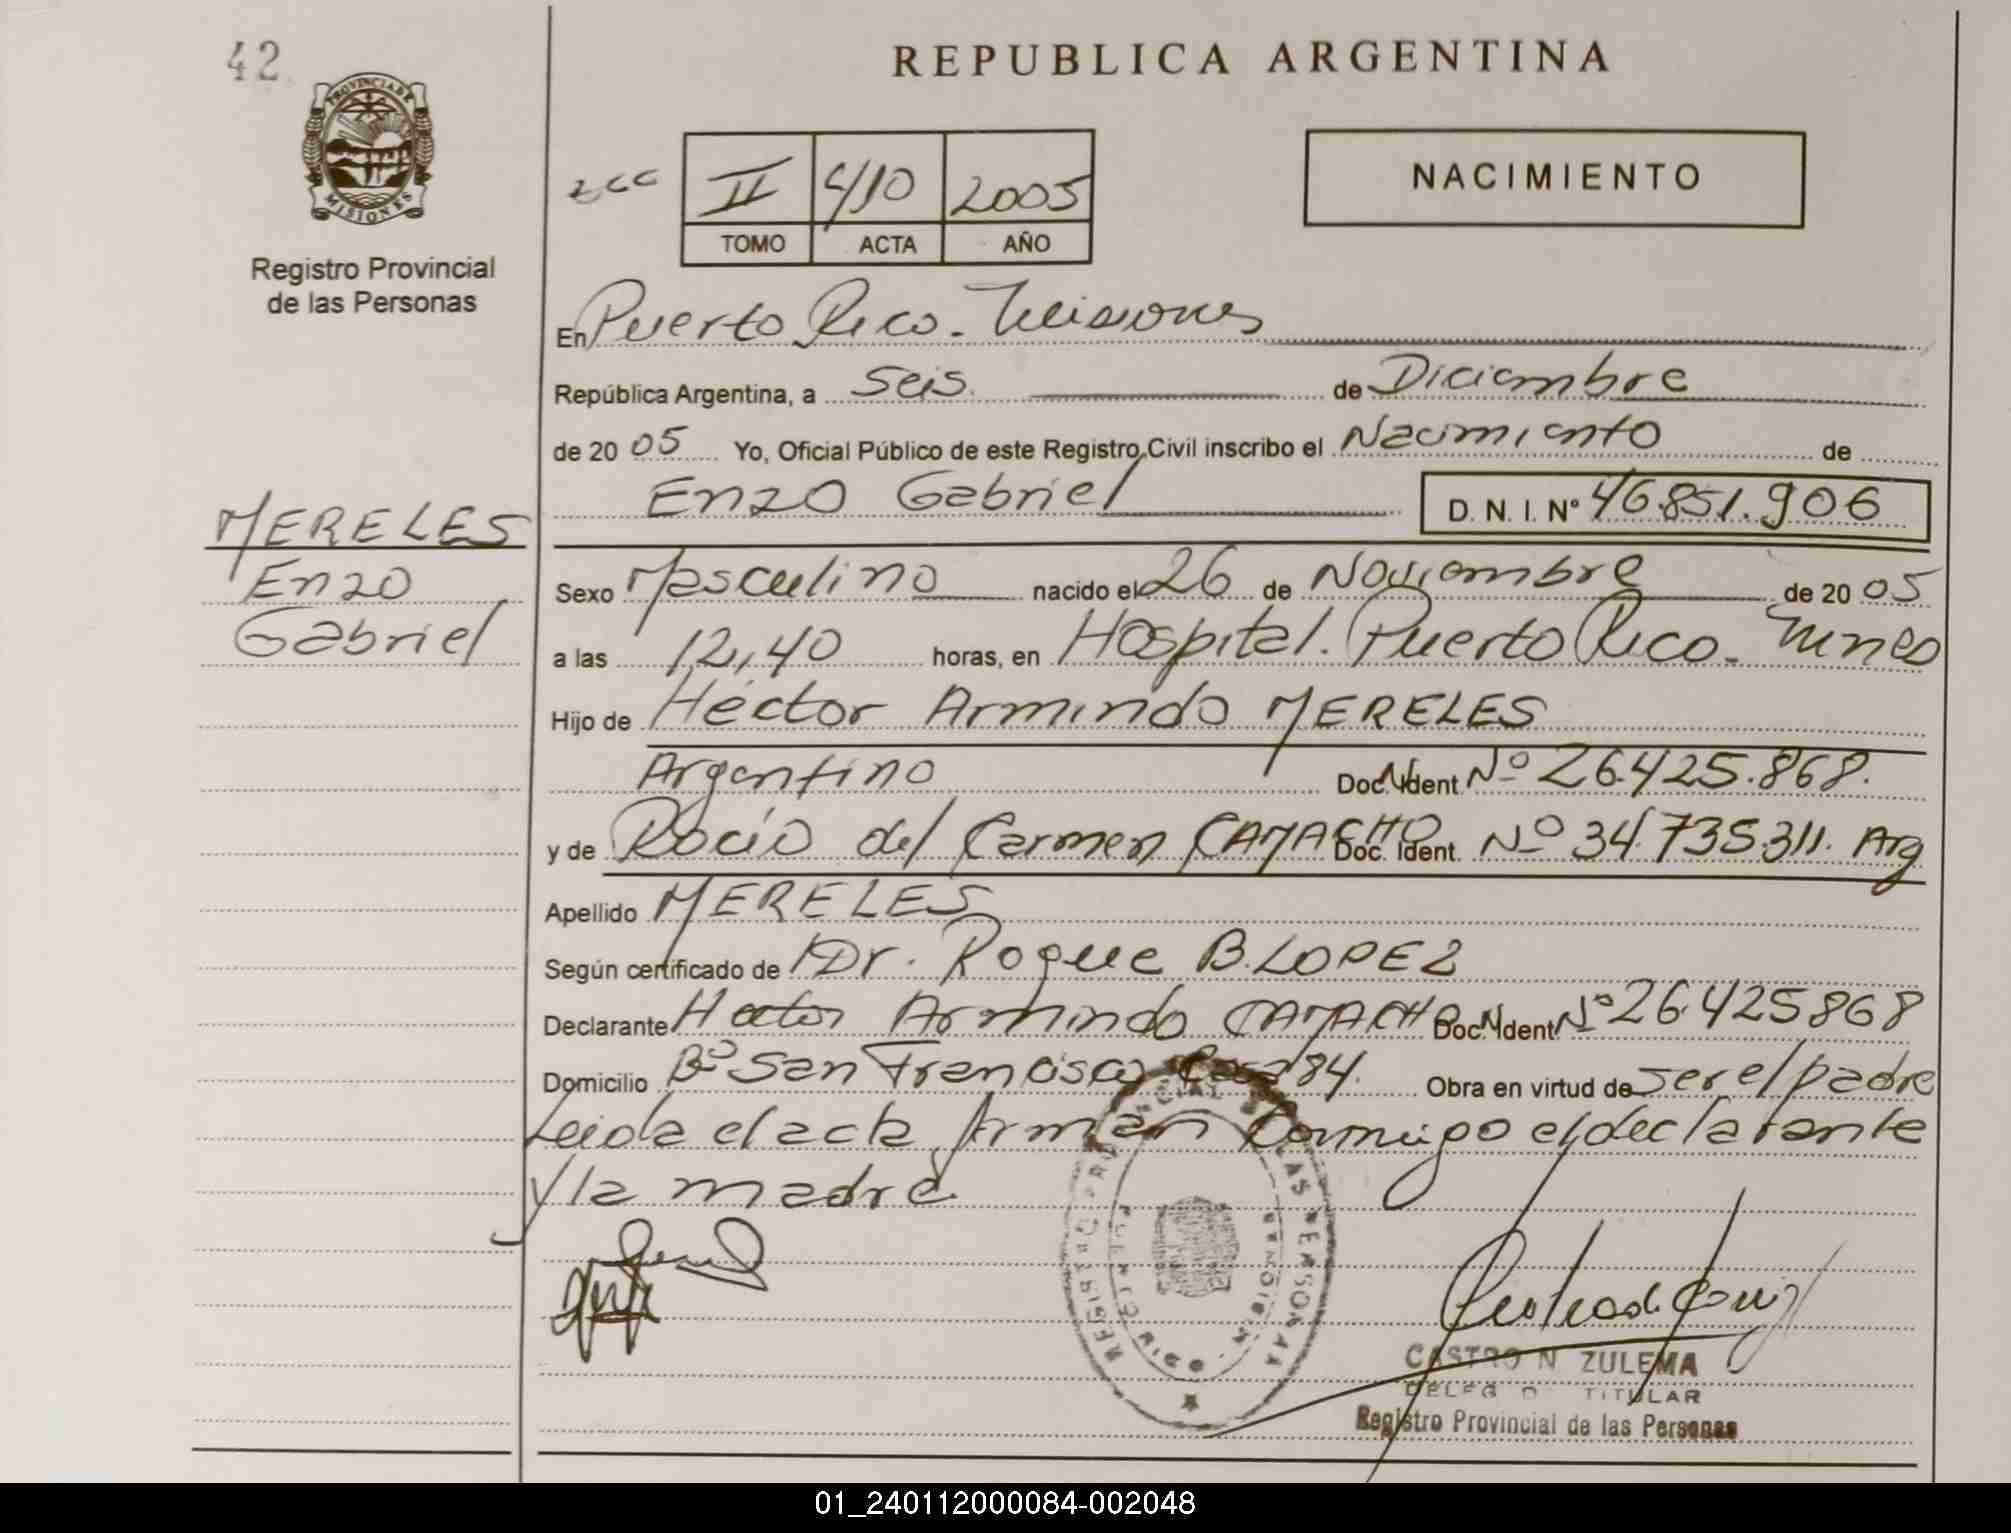 42
REPUBLICA ARGENTINA
PROVINCIA DE
MISIONES
Registro Provincial
de las Personas
II 410 2005
TOMO ACTA AÑO
NACIMIENTO
En Puerto Rico - Misiones
República Argentina, a Seis de Diciembre
de 20 05 Yo, Oficial Público de este Registro Civil inscribo el Nacimiento de
Enzo Gabriel D. N. I. Nº 46.851.906
MERELES
Enzo
Gabriel
Sexo Masculino nacido el 26 de Noviembre de 20 05
a las 12,40 horas, en Hospital. Puerto Rico - Mnes
Hijo de Héctor Armindo MERELES
Argentino Doc. Ident. Nº 26.425.868.
y de Rocío del Carmen CAMACHO Doc. Ident. Nº 34.735.311. Arg
Apellido MERELES
Según certificado de Dr. Roque B. LOPEZ
Declarante Hector Armindo CAMACHO Doc. Ident. Nº 26.425868
Domicilio Bº San Francisco Casa 84. Obra en virtud de ser el padre
Leida el acta firman conmigo el declarante
y la madre
REGISTRO PROVINCIAL DE LAS PERSONAS
PUERTO RICO - MISIONES
CASTRO N ZULEMA
DELEG TITULAR
Registro Provincial de las Personas
01_240112000084-002048